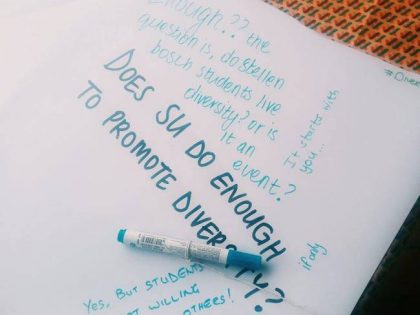 enough?? the
question is, do stellen
bosch students live
diversity? or is
it an
event?
DOES SU DO ENOUGH
TO PROMOTE DIVERSITY?
It starts with
you...
if only
Yes, BUT STUDENTS
WILLING
OTHERS!